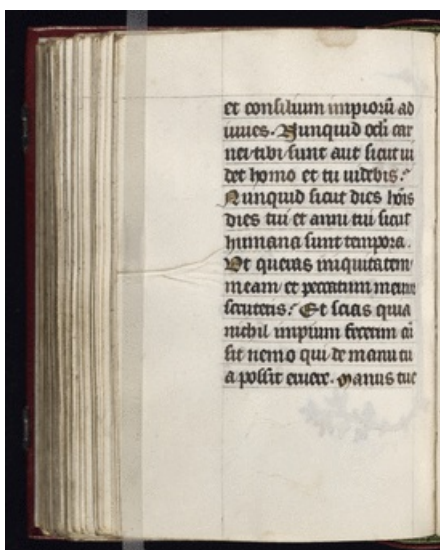 et consilium impiorū ad
iuues. Nunquid oculi car
nei tibi sunt aut sicut ui
det homo et tu uidebis?
Nunquid sicut dies hōis
dies tui et anni tui sicut
humana sunt tempora.
Ut queras iniquitatem
meam et peccatum meum
scruteris? Et scias quia
nichil impium fecerim cū
sit nemo qui de manu tu
a possit eruere. Manus tue